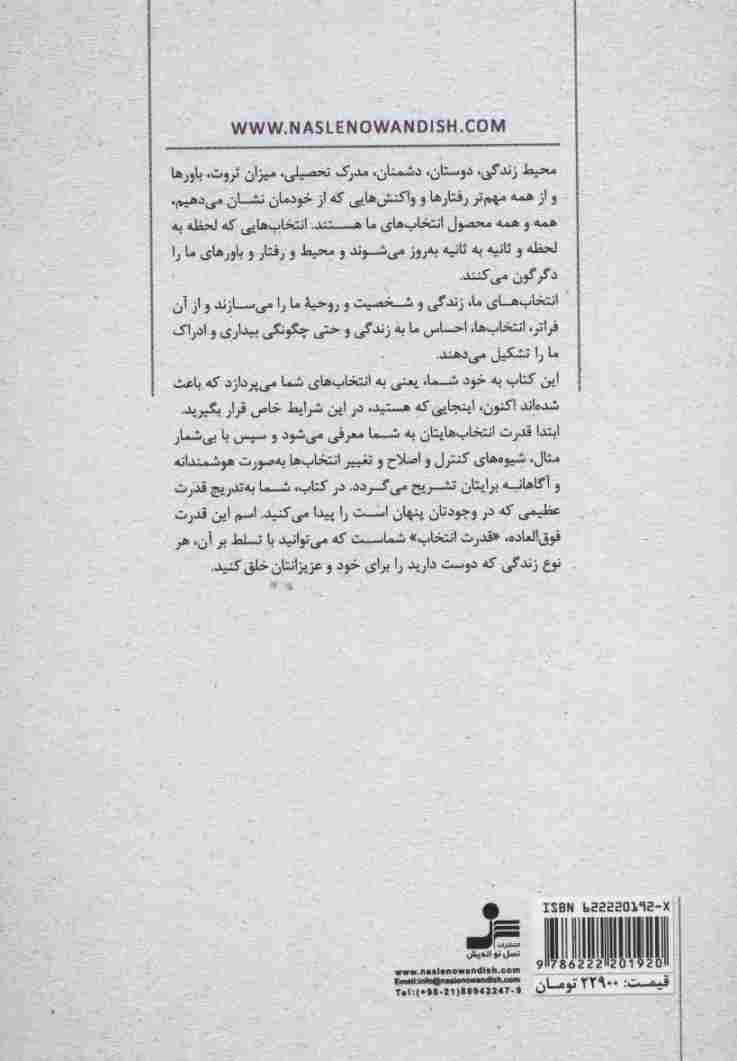 WWW.NASLENOWANDISH.COM
محیط زندگی، دوستان، دشمنان، مدرک تحصیلی، میزان ثروت، باورها
و از همه مهم‌تر رفتارها و واکنش‌هایی که از خودمان نشان می‌دهیم،
همه و همه محصول انتخاب‌های ما هستند. انتخاب‌هایی که لحظه به
لحظه و ثانیه به ثانیه به‌روز می‌شوند و محیط و رفتار و باورهای ما را
دگرگون می‌کنند.
انتخاب‌های ما، زندگی و شخصیت و روحیۀ ما را می‌سازند و از آن
فراتر، انتخاب‌ها، احساس ما به زندگی و حتی چگونگی بیداری و ادراک
ما را تشکیل می‌دهند.
این کتاب به خود شما، یعنی به انتخاب‌های شما می‌پردازد که باعث
شده‌اند اکنون، اینجایی که هستید، در این شرایط خاص قرار بگیرید.
ابتدا قدرت انتخاب‌هایتان به شما معرفی می‌شود و سپس با بی‌شمار
مثال، شیوه‌های کنترل و اصلاح و تغییر انتخاب‌ها به‌صورت هوشمندانه
و آگاهانه برایتان تشریح می‌گردد. در کتاب، شما به‌تدریج قدرت
عظیمی که در وجودتان پنهان است را پیدا می‌کنید. اسم این قدرت
فوق‌العاده، «قدرت انتخاب» شماست که می‌توانید با تسلط بر آن، هر
نوع زندگی که دوست دارید را برای خود و عزیزانتان خلق کنید.
ISBN 622220192-X
9 786222 201920
قیمت: ۲۲۹۰۰ تومان
انتشارات
نسل نو اندیش
www.naslenowandish.com
Email:info@naslenowandish.com
Tel:(+98-21)88942247-9